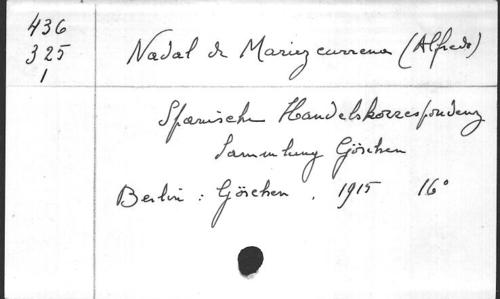 436
325
1
Nadal de Mariezcurrena (Alfredo)
Spanische Handelskorrespondenz
Sammlung Göschen
Berlin : Göschen , 1915 16°